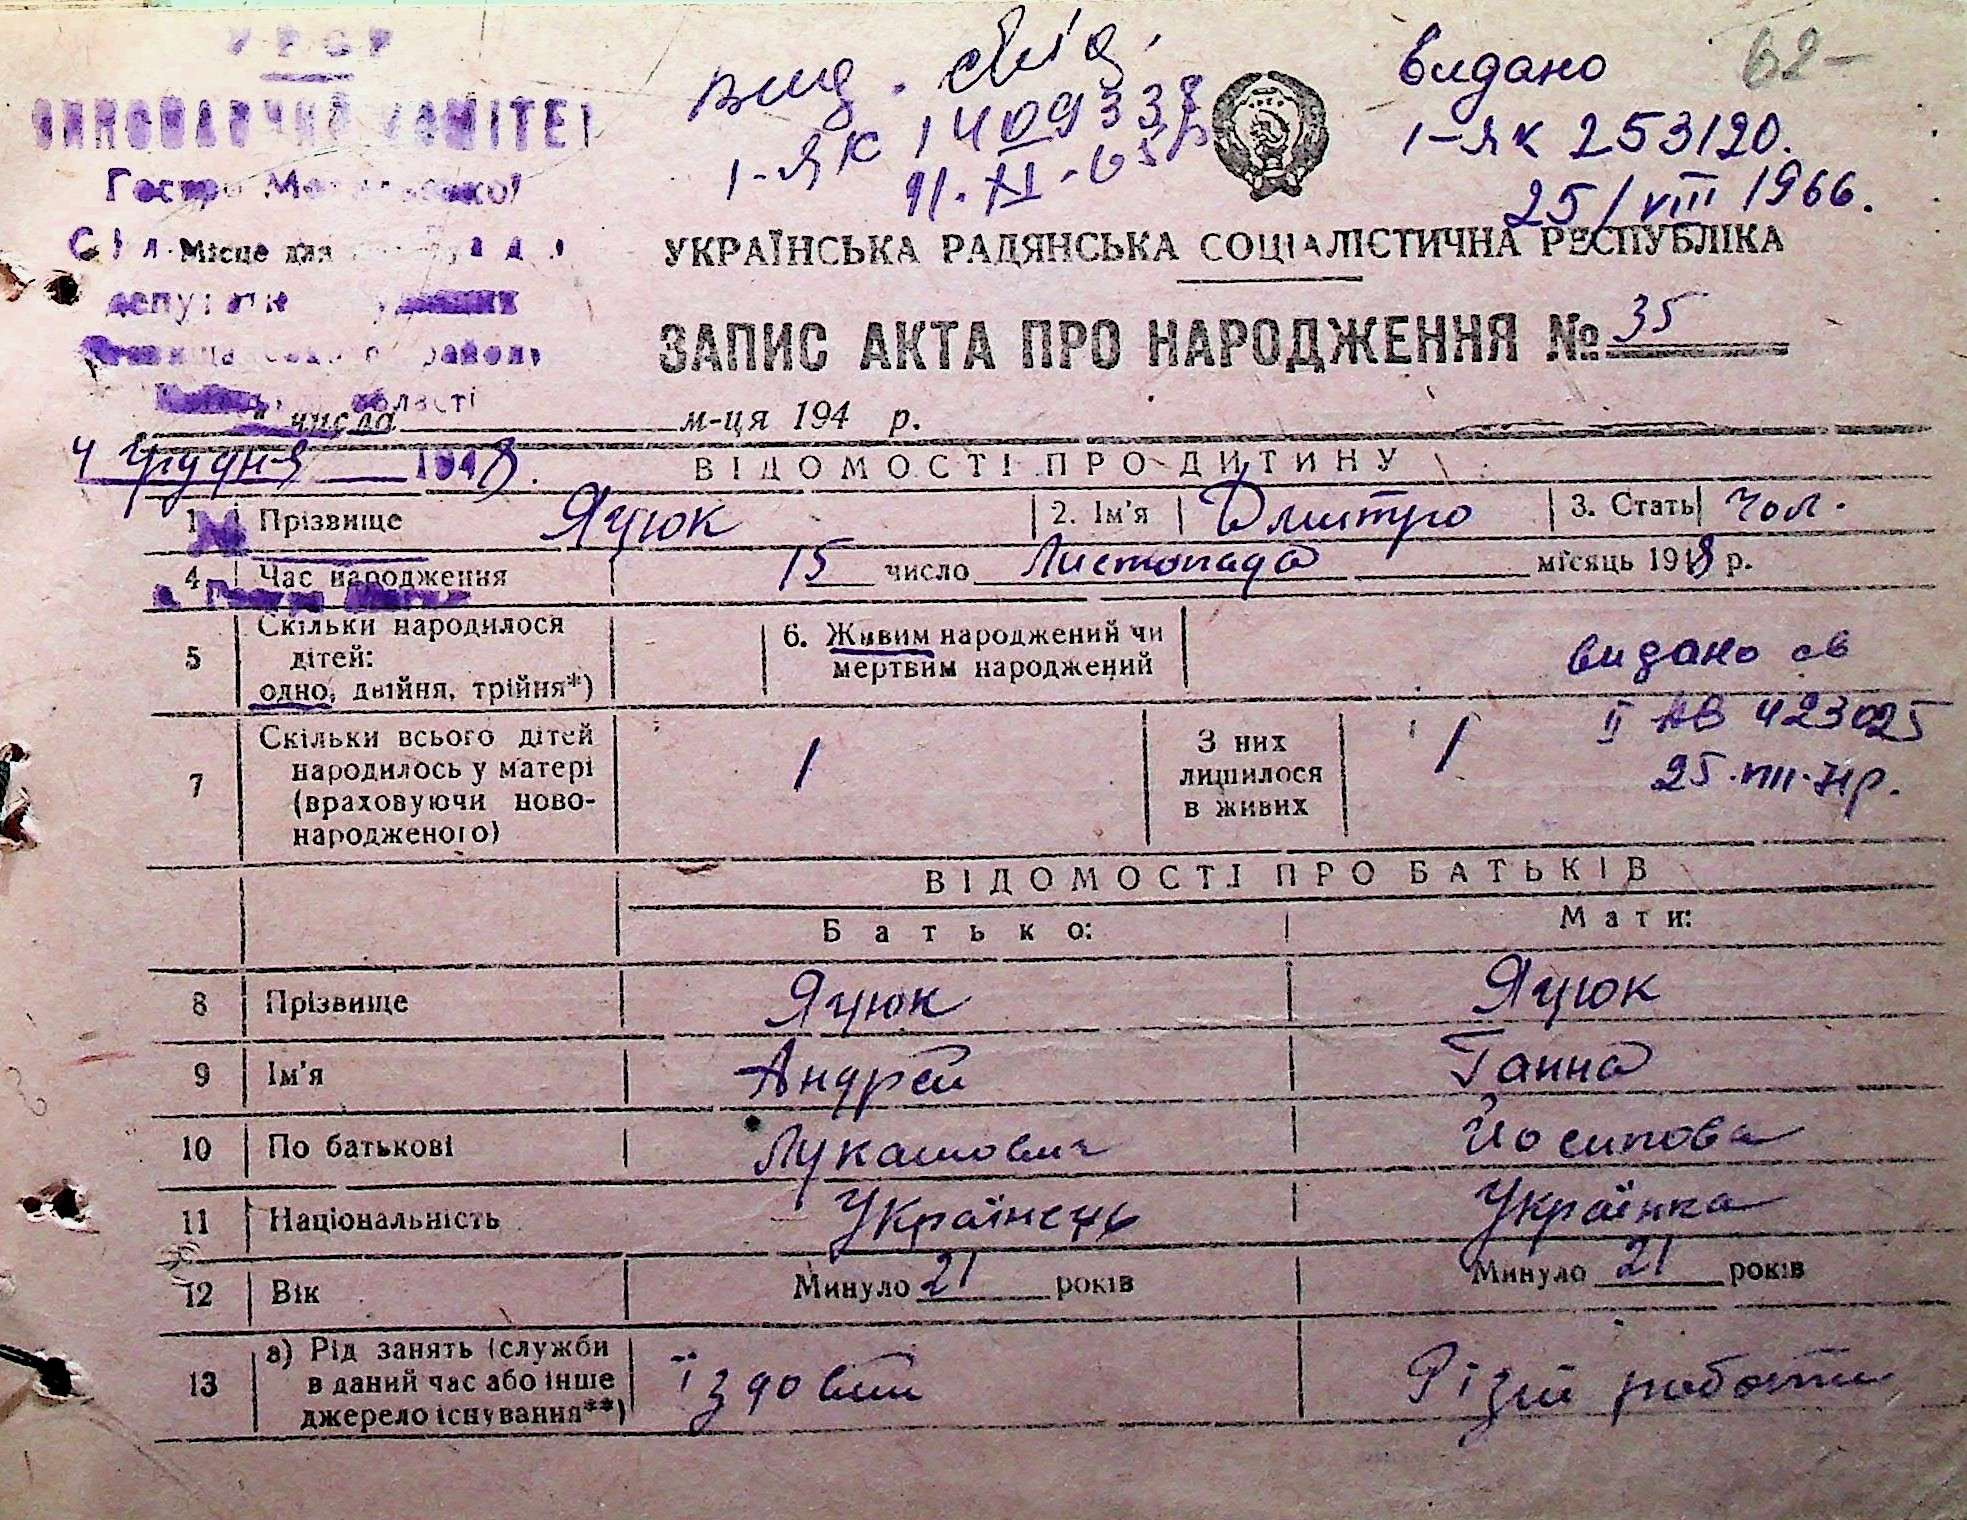 УРСР
ВИКОНАВЧИЙ КОМІТЕТ
Гостро
Місце для
області
вид. свід.
І-ЯК 1409338
11.XI-65р
видано 62-
І-ЯК 253120.
25/VIII 1966.
УКРАЇНСЬКА РАДЯНСЬКА СОЦІАЛІСТИЧНА РЕСПУБЛІКА
ЗАПИС АКТА ПРО НАРОДЖЕННЯ № 35
" числа м-ця 194 р.
4 грудня 1948.
ВІДОМОСТІ ПРО ДИТИНУ
1 Прізвище Яцюк 2. Ім'я Дмитро 3. Стать чол.
4 Час народження 15 число Листопада місяць 1948 р.
5 Скільки народилося дітей: одно, двійня, трійня*)
6. Живим народжений чи мертвим народжений
видано св
ІІ АВ 423025
25.VIII.71р.
7 Скільки всього дітей народилось у матері (враховуючи ново-народженого) 1
З них лишилося в живих 1
ВІДОМОСТІ ПРО БАТЬКІВ
Батько: Мати:
8 Прізвище Яцюк Яцюк
9 Ім'я Андрей Ганна
10 По батькові Лукашович Йосипова
11 Національність Українець Українка
12 Вік Минуло 21 років Минуло 21 років
13 а) Рід занять (служби в даний час або інше джерело існування**) їздовий Різні роботи